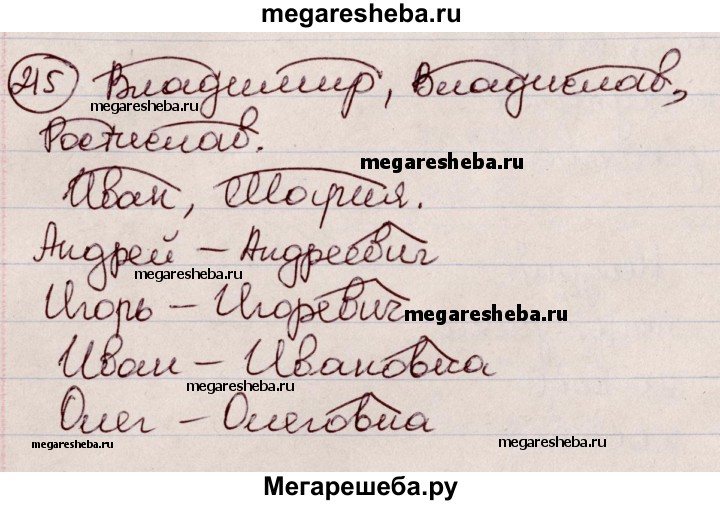 megaresheba.ru
215 Владимир, Владислав,
megaresheba.ru
Ростислав.
megaresheba.ru
Иван, Мария.
Андрей – Андреевич
megaresheba.ru
Игорь – Игоревич
megaresheba.ru
Иван – Ивановна
megaresheba.ru
Олег – Олеговна
megaresheba.ru
megaresheba.ru
Мегарешеба.ру